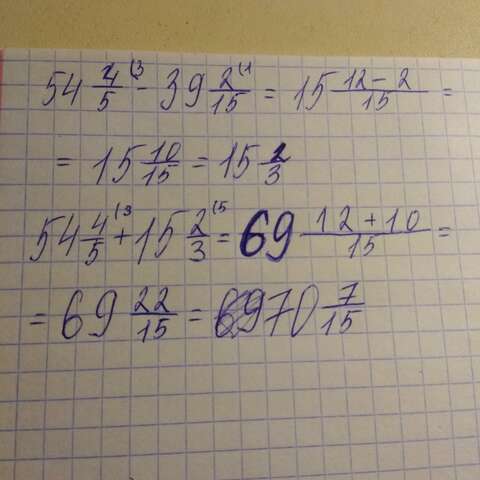 54 4/5 (3 - 39 2/15 (1 = 15 12-2/15 =
= 15 10/15 = 15 2/3
54 4/5 (3 + 15 2/3 (5 = 69 12+10/15 =
= 69 22/15 = 70 7/15